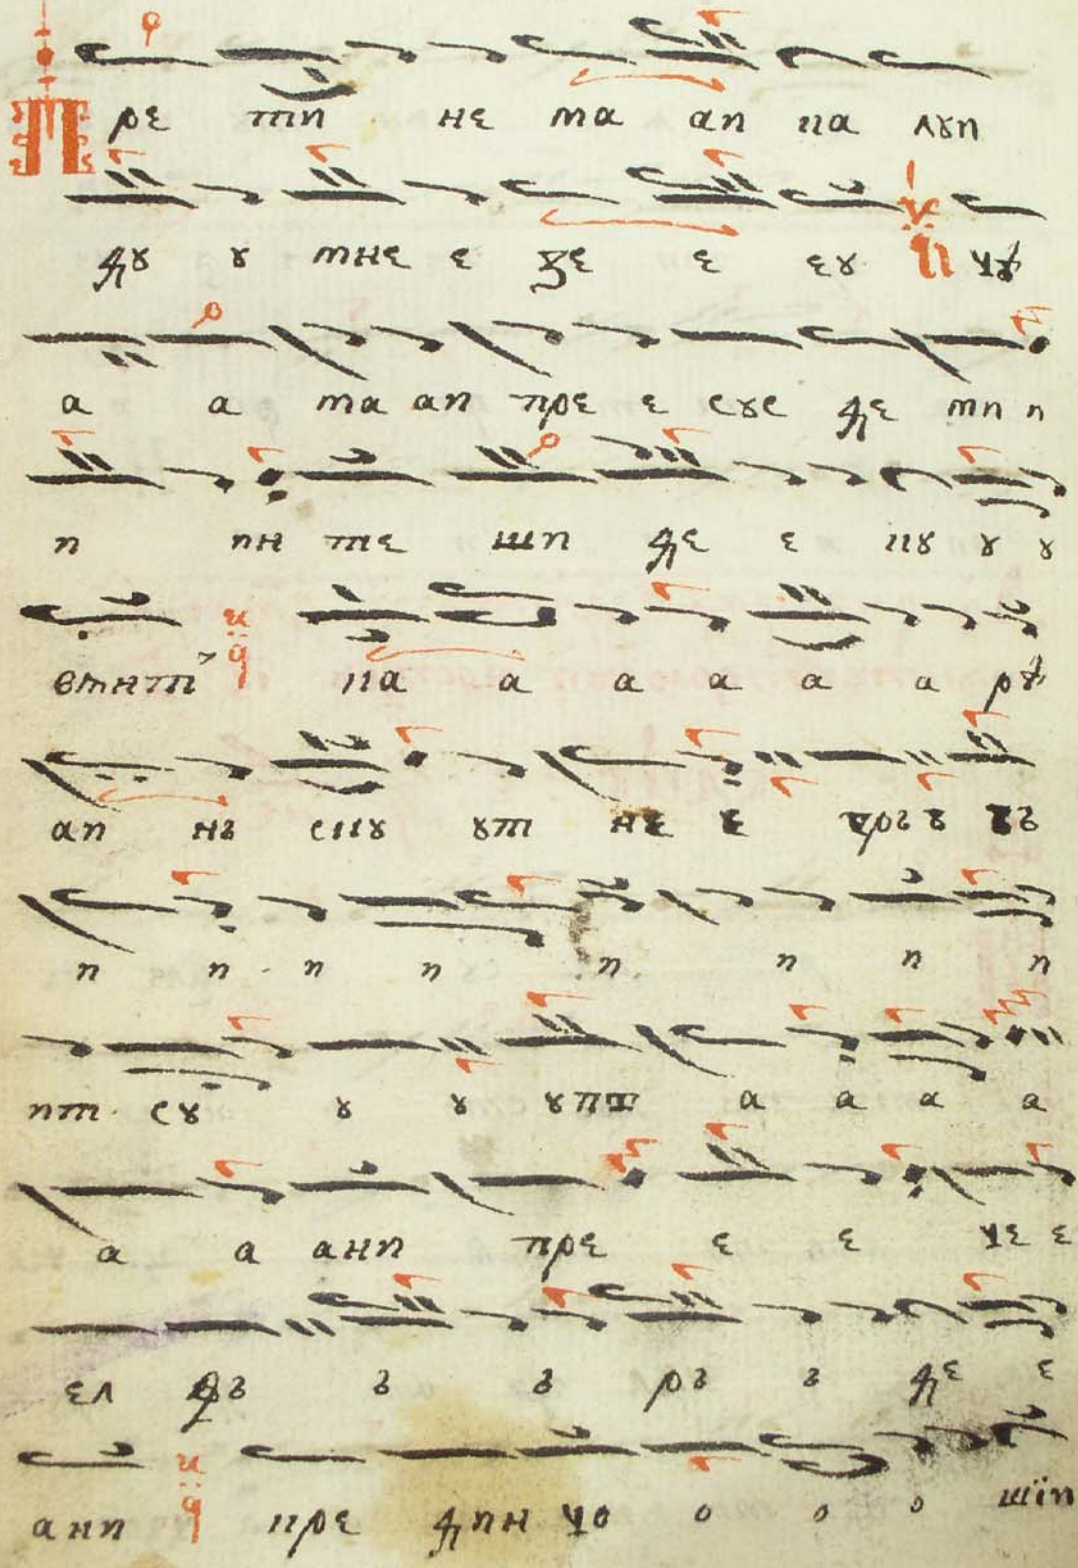 Пре ти не ма аи ка лꙋи
дꙋ ꙋ мне е зе е еꙋ чꙗ
а а ма аи пре е сꙋс де ми и
и ин те ши де е кꙋ ꙋ ꙋ
вѫнт ка а а а а а рꙗ
аи нъ скꙋ ꙋт не е гръ ъ ъъ
и и и и и и и и
ит сꙋ ꙋ ꙋ ꙋпт а а а а
а а ани пре е е че е
ел фъ ъ ъ ръ ъ де е
ани кре дин чо о о о шїи